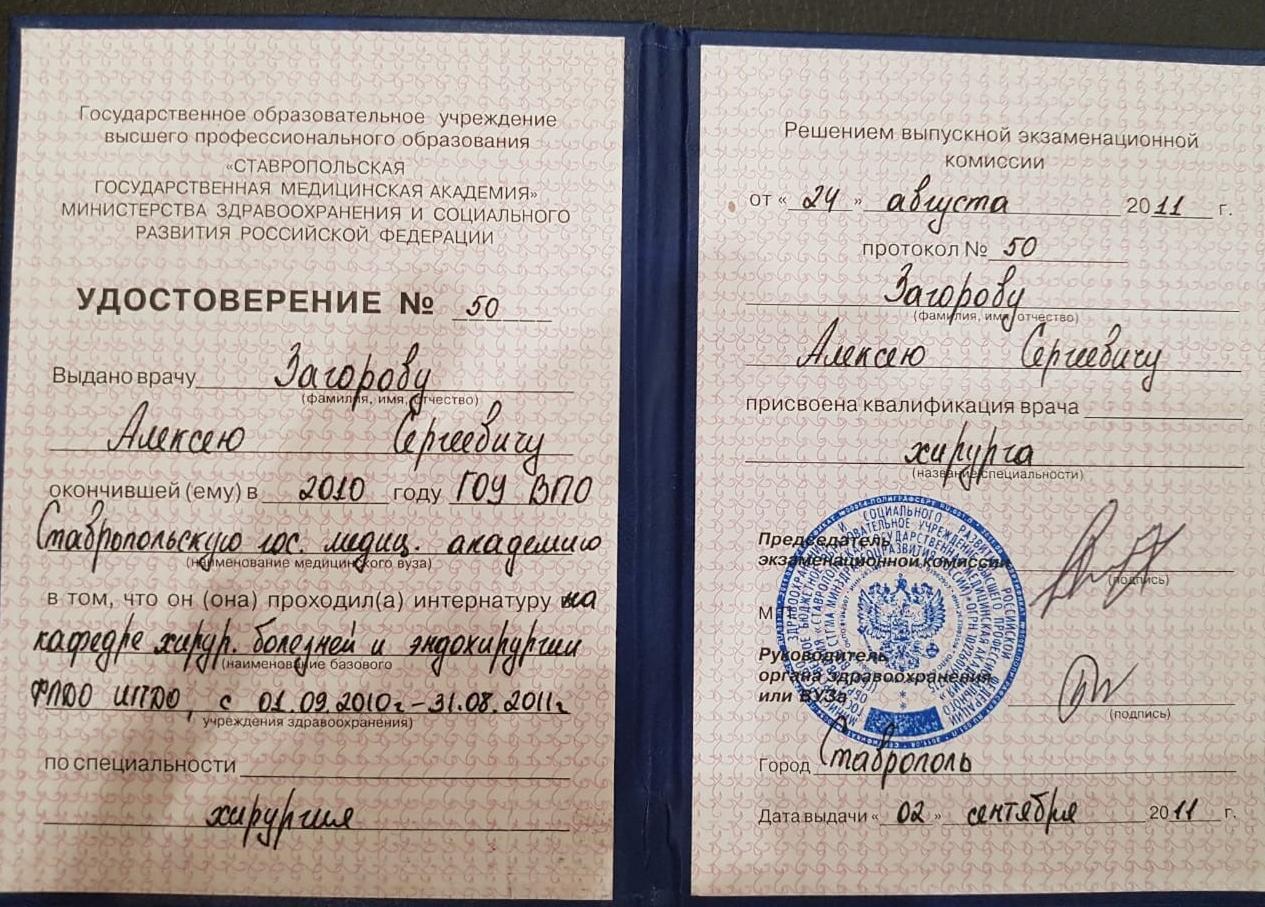 Государственное образовательное учреждение
высшего профессионального образования
«СТАВРОПОЛЬСКАЯ
ГОСУДАРСТВЕННАЯ МЕДИЦИНСКАЯ АКАДЕМИЯ»
МИНИСТЕРСТВА ЗДРАВООХРАНЕНИЯ И СОЦИАЛЬНОГО
РАЗВИТИЯ РОССИЙСКОЙ ФЕДЕРАЦИИ
УДОСТОВЕРЕНИЕ № 50
Выдано врачу Загорову
(фамилия, имя, отчество)
Алексею Сергеевичу
окончившей (ему) в 2010 году ГОУ ВПО
Ставропольскую гос. медиц. академию
(наименование медицинского вуза)
в том, что он (она) проходил(а) интернатуру на
кафедре хирур. болезней и эндохирургии
(наименование базового
ФПДО ИПДО, с 01.09.2010г-31.08.2011г
учреждения здравоохранения)
по специальности
хирургия
Решением выпускной экзаменационной
комиссии
от « 24 » августа 2011 г.
протокол № 50
Загорову
(фамилия, имя, отчество)
Алексею Сергеевичу
присвоена квалификация врача
хирурга
(название специальности)
Председатель
экзаменационной комиссии
(подпись)
М.П.
Руководитель
органа здравоохранения
или ВУЗа
(подпись)
Город Ставрополь
Дата выдачи « 02 » сентября 2011 г.